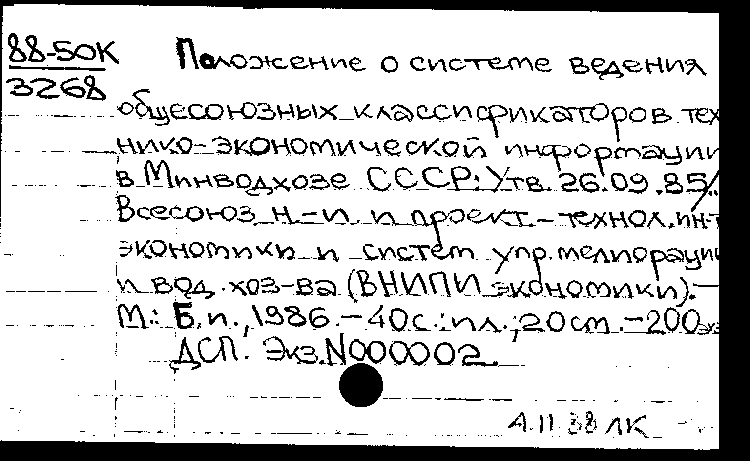 88-50К
3268
Положение о системе ведения
общесоюзных классификаторов тех
нико-экономической информации
в Минводхозе СССР: Утв. 26.09.85/
Всесоюз. н-и и проект.-технол. ин-т
экономики и систем упр. мелиорации
и вод. хоз-ва (ВНИПИ экономики). –
М.: Б.и., 1986. – 40с.: ил.; 20см. – 200экз
ДСП. Экз. N000002.
ЛК